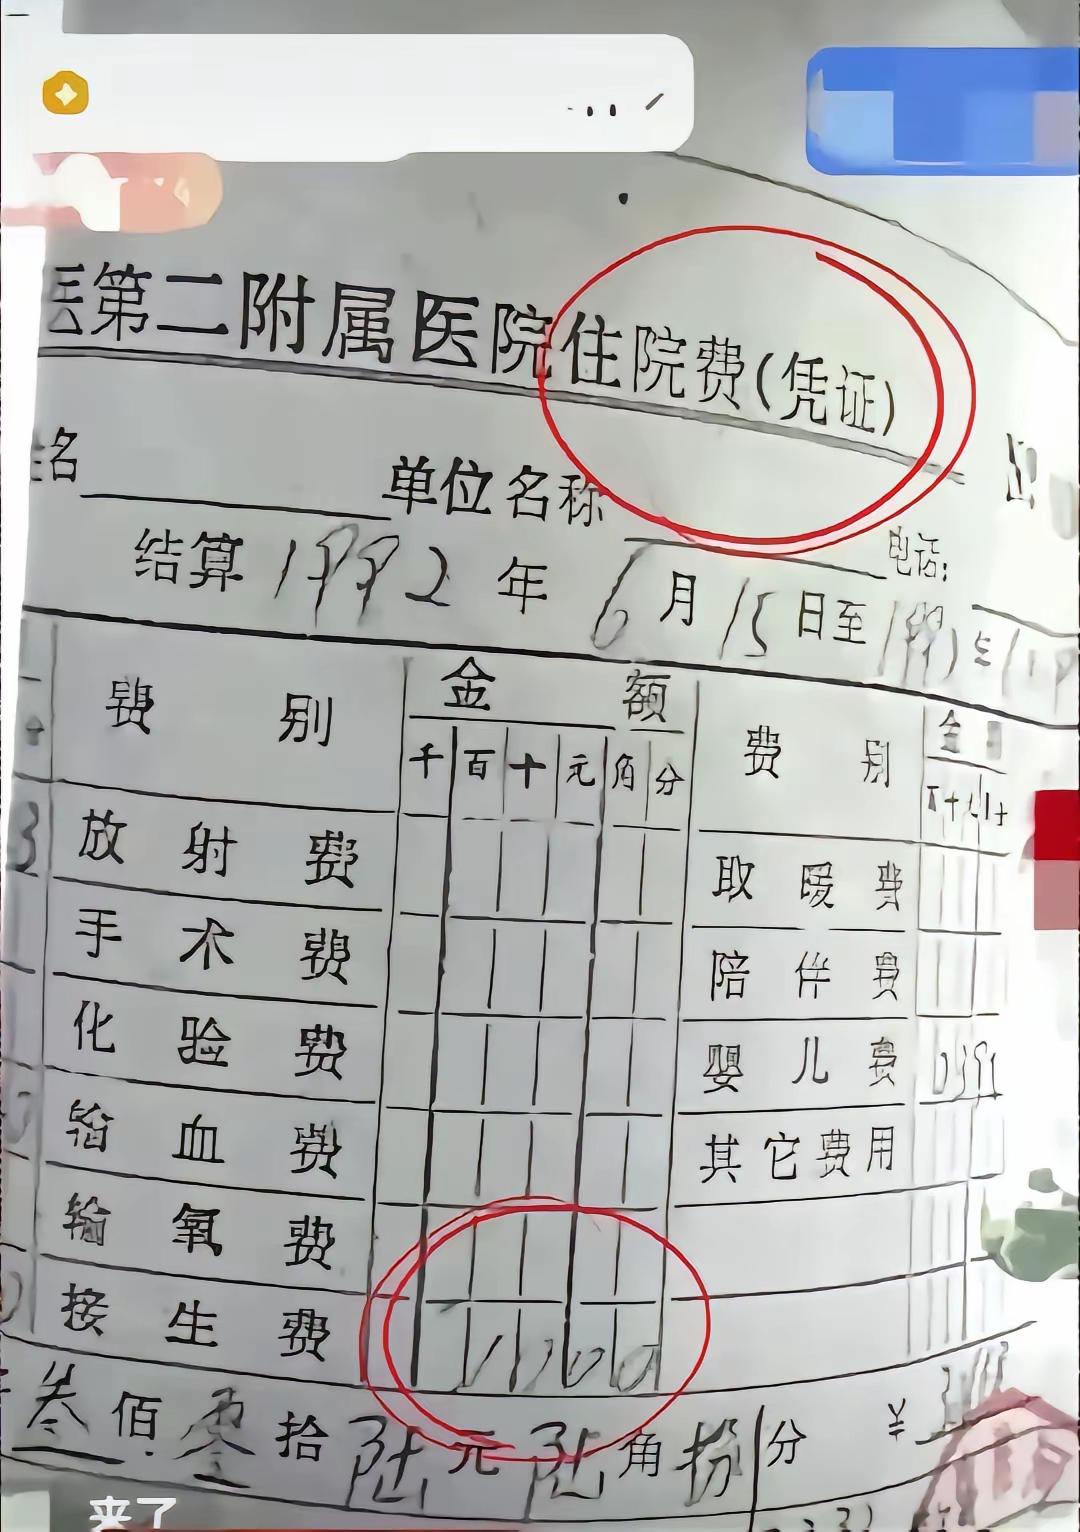 第二附属医院住院费(凭证)
名 单位名称 电话:
结算 1992 年 6 月 15 日至
费 别 金 额 费 别 金
千 百 十 元 角 分
放 射 费 取 暖 费
手 术 费 陪 伴 费
化 验 费 婴 儿 费
输 血 费 其它费用
输 氧 费
接 生 费
叁 佰 零 拾 陆 元 陆 角 分 ¥
来了